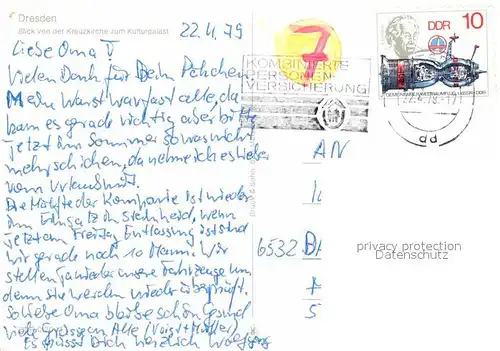 Dresden
Blick von der Kreuzkirche zum Kulturpalast
22.4.79
Liebe Oma!
Vielen Dank für Dein Päckchen
Meine Wurst war fast alle, da
kam es gerade richtig aber bitte
jetzt im Sommer sowas nicht
mehr schicken, da nehme ich es lieber
vom Urlaub mit.
Die Hälfte der Kompanie ist wieder
im Einsatz in Steinheid, wenn
jetzt am Freitag Entlassung ist sind
wir gerade noch 10 Mann. Wir
stellen ja wieder unsere Fahrzeuge um,
denn sie werden wieder überprüft.
So liebe Oma bleibe schön gesund
viele Grüsse an Alle (Voigt + Müller)
Es grüsst Dich herzlich Wolfgang
7
KOMBINIERTE
PERSONEN-
VERSICHERUNG
DDR 10
GEMEINSAMER WELTRAUMFLUG UDSSR-DDR
22.4.79-17
AN
6532
privacy protection
Datenschutz